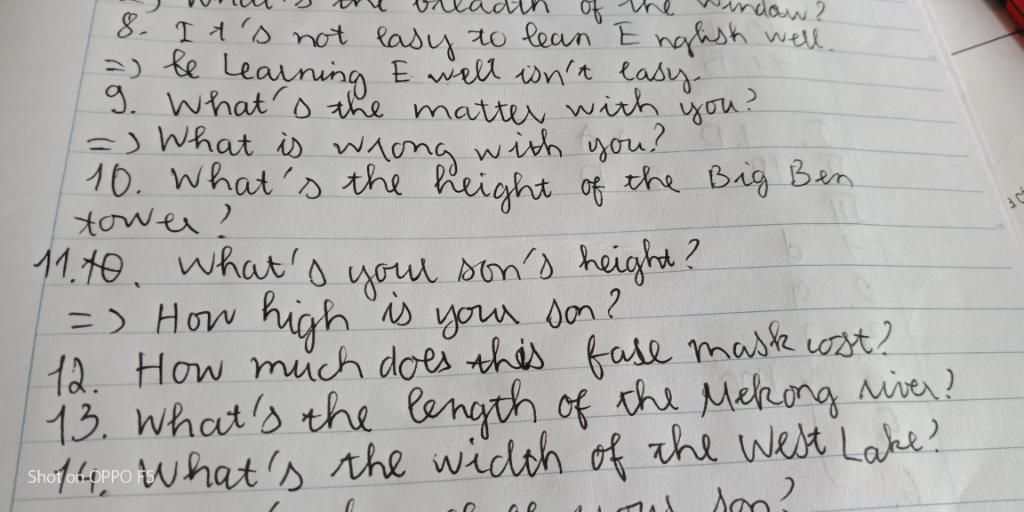 What's the breadth of the window?
8. It's not easy to lean English well.
=) Learning E well isn't easy.
9. What's the matter with you?
=) What is wrong with you?
10. What's the height of the Big Ben
tower?
11. What's your son's height?
=) How high is your son?
12. How much does this fase mask cost?
13. What's the length of the Mekong river?
14. What's the width of the West Lake?
son?
Shot on OPPO F5